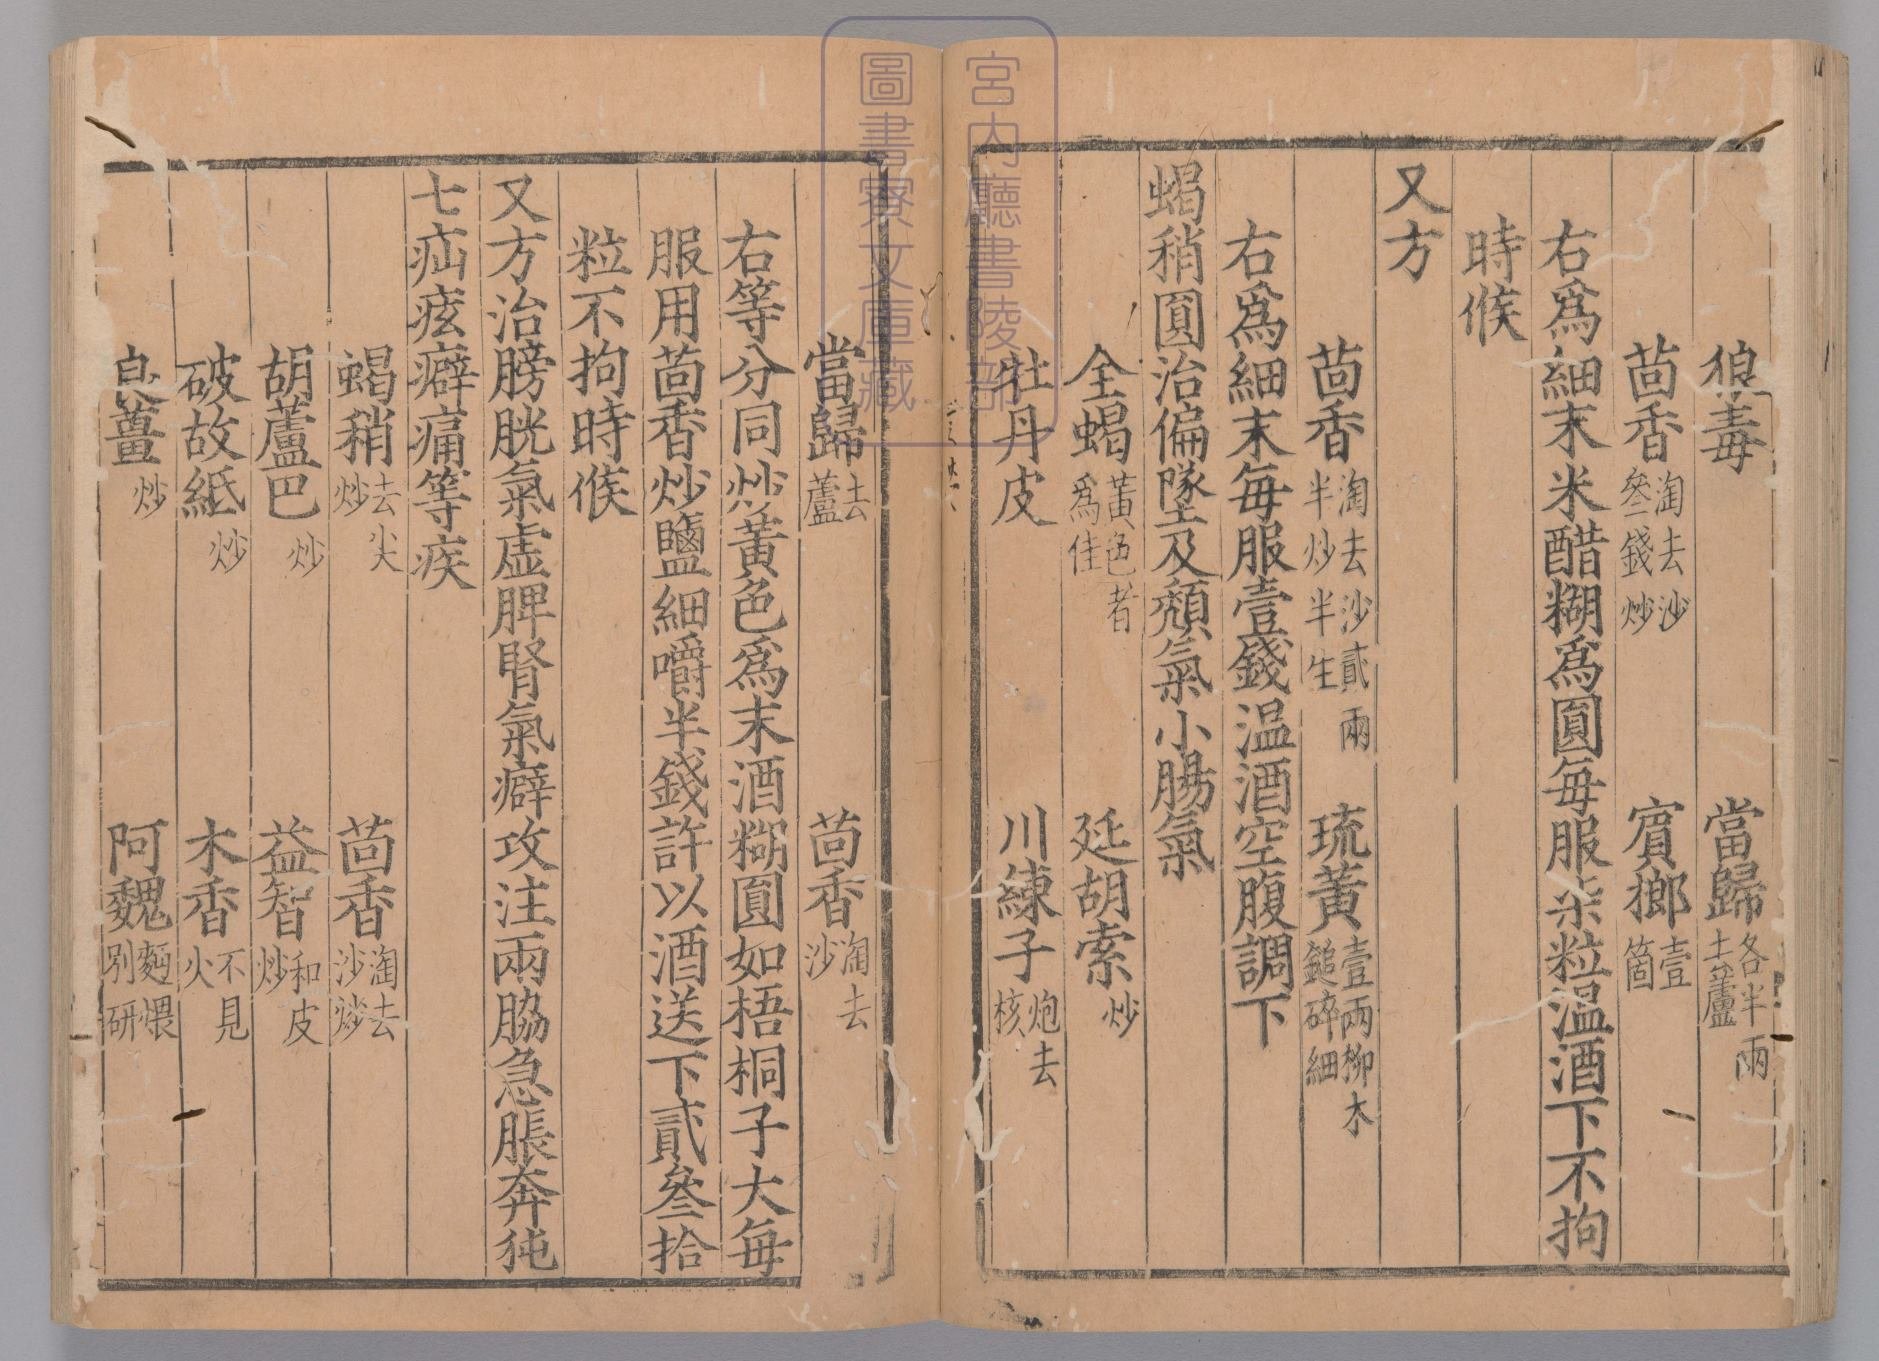 狼毒　當歸各半兩去蘆
茴香淘去沙叁錢炒　賔榔壹箇
右爲細末米醋糊爲圓每服柒粒温酒下不拘
時候
又方
茴香淘去沙貳兩半炒半生　琉黃壹兩柳木鎚碎細
右爲細末每服壹錢温酒空腹調下
蝎稍圓治偏墜及㿗氣小腸氣
全蝎黃色者爲佳　延胡索炒
牡丹皮　川練子炮去核
宮内廳書陵部
圖書寮文庫藏
當歸去蘆　茴香淘去沙
右等分同炒黃色爲末酒糊圓如梧桐子大每
服用茴香炒鹽細嚼半錢許以酒送下貳叁拾
粒不拘時候
又方治膀胱氣虛脾腎氣癖攻注兩脇急脹奔㹠
七疝痃癖痛等疾
蝎稍去尖炒　茴香淘去沙炒
胡蘆巴炒　益智和皮炒
破故紙炒　木香不見火
良薑炒　阿魏麪煨別研